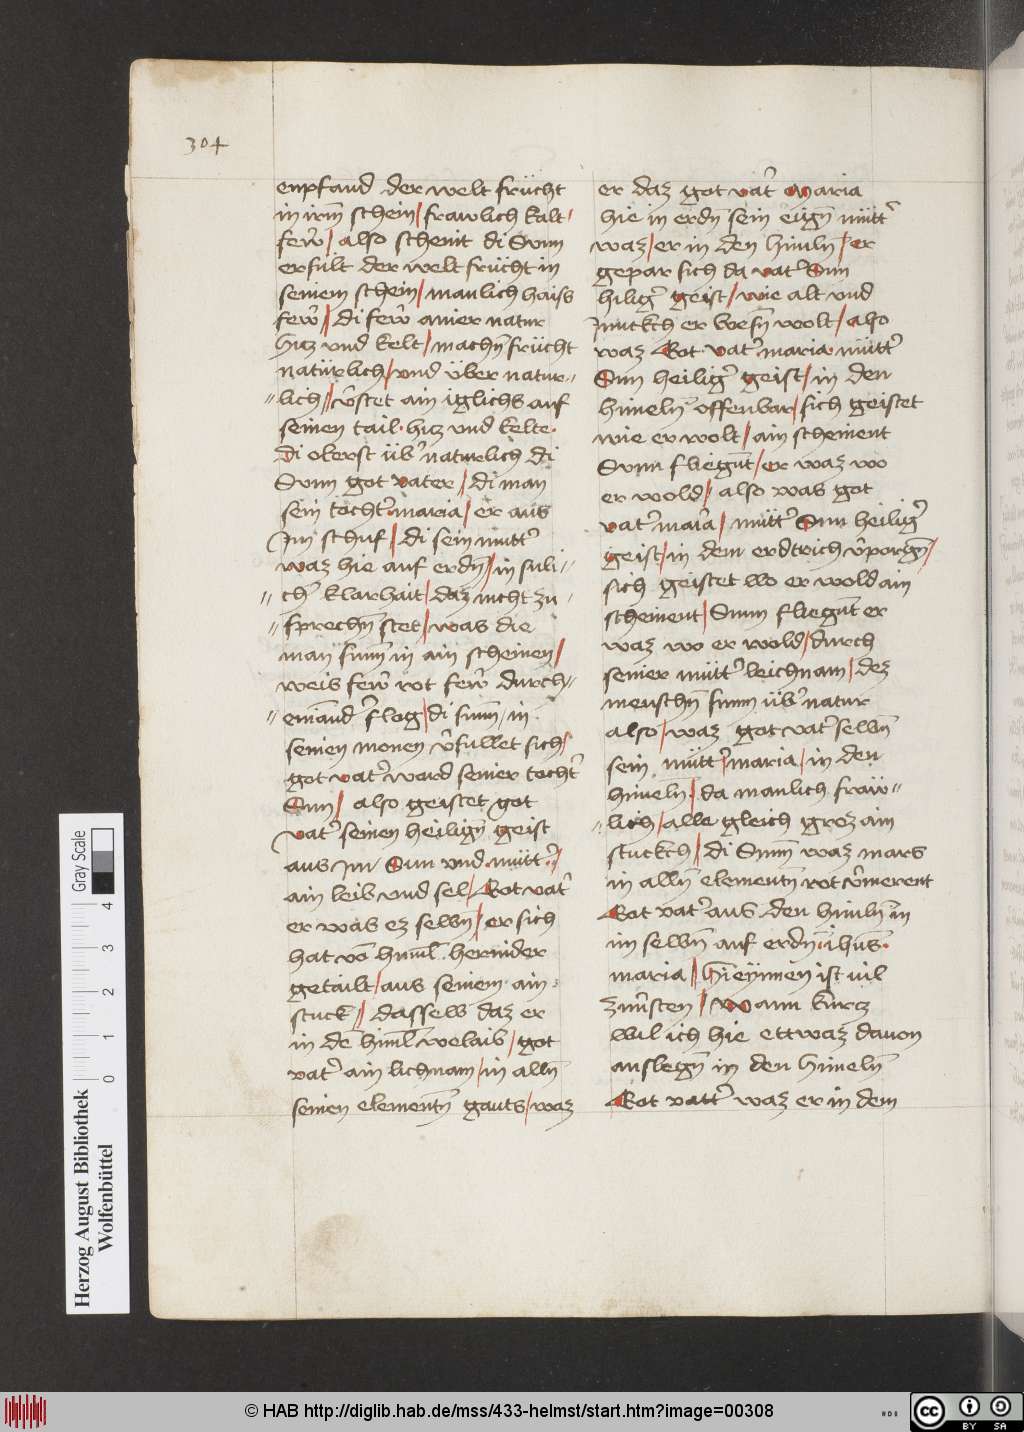 304
enpfand der welt frücht
in irm̄ schein / frawlich kalt /
fewr̄ / also scheint di Sunn
erfült der welt frücht in
seinem schein / manlich haiss
fewr̄ / di fewr̄ ainer natur
hicz vnd kelt / machen̄ frücht
natürlich / vnd über natur=
=lich / vr̄stet ain iglichs auf
seinen tail · hicz vnd kelte ·
Di oberst üb̾ natürlich di
Sunn got vater / di man
sein tocht̾ maria / er aus
Im schuf / di sein mutt̾
waz hie auf erdn̄ / in suli=
=ch̾ klarhait / daz nicht zu
=sprechn̄ stet / was die
man sunn̄ in ain scheinen /
weis fewr̄ rot fewr̄ durch=
=einand̾ flog / di sunn̄ / in
seinen monen vr̄fullet sich /
got vat̾ ward seiner tocht̾
Sun / also geistet got
vat̾ seinen heilign̄ geist
aus Im Sun vnd mütt̾ /
ain leib vnd sel / Got vat̾
er was ez selbn̄ / er sich
hat vō himl̄ hernider
getailt / aus seinem ain
stuck / dasselb daz er
in dē himl̄ belaib / got
vat̾ ain lichnam / in alln̄
seinen elementn̄ gancz / waz
er daz got vat̾ Maria
hie in erdn̄ sein eign̄ mütt̾
waz / er in den himln̄ / er
gepar sich da vat̾ Sun
hilig̾ geist / wie alt vnd
er wesn̄ wolt / also
waz Got vat̾ maria mütt̾
Sun heilig̾ geist / in den
himeln̄ offenbar / sich geistet
wie er wolt / ain scheinent
Sunn fliegn̄t / er waz wo
er wold / also was got
vat̾ maria / mütt̾ Sun heilig̾
geist / in dem erdtrich vr̄porgn̄ /
sich geistet wo er wold ain
scheinent / Sunn fliegn̄t er
waz wo er wold / durch
seiner mütt̾ leichnam / dez
menschn̄ sunn üb̾ natur
also / waz got vat̾ selbn̄
sein mütt̾ maria / in den
himeln̄ / da manlich fräw=
=lich / alle gleich groz ain
stuckch / di Sunn̄ waz mars
in alln̄ elementn̄ rot vr̄merent
Got vat̾ aus den himln̄ in
im selbn̄ auf erdn̄ ihūs ·
maria / hieyinnen ist vil
/ Wann kurcz
wil ich hie ettwaz davon
auslegn̄ in den himeln̄
Got vatt̾ waz er in dem
Herzog August Bibliothek
Wolfenbüttel
Gray Scale
0 1 2 3 4
© HAB http://diglib.hab.de/mss/433-helmst/start.htm?image=00308
HAB
cc BY SA